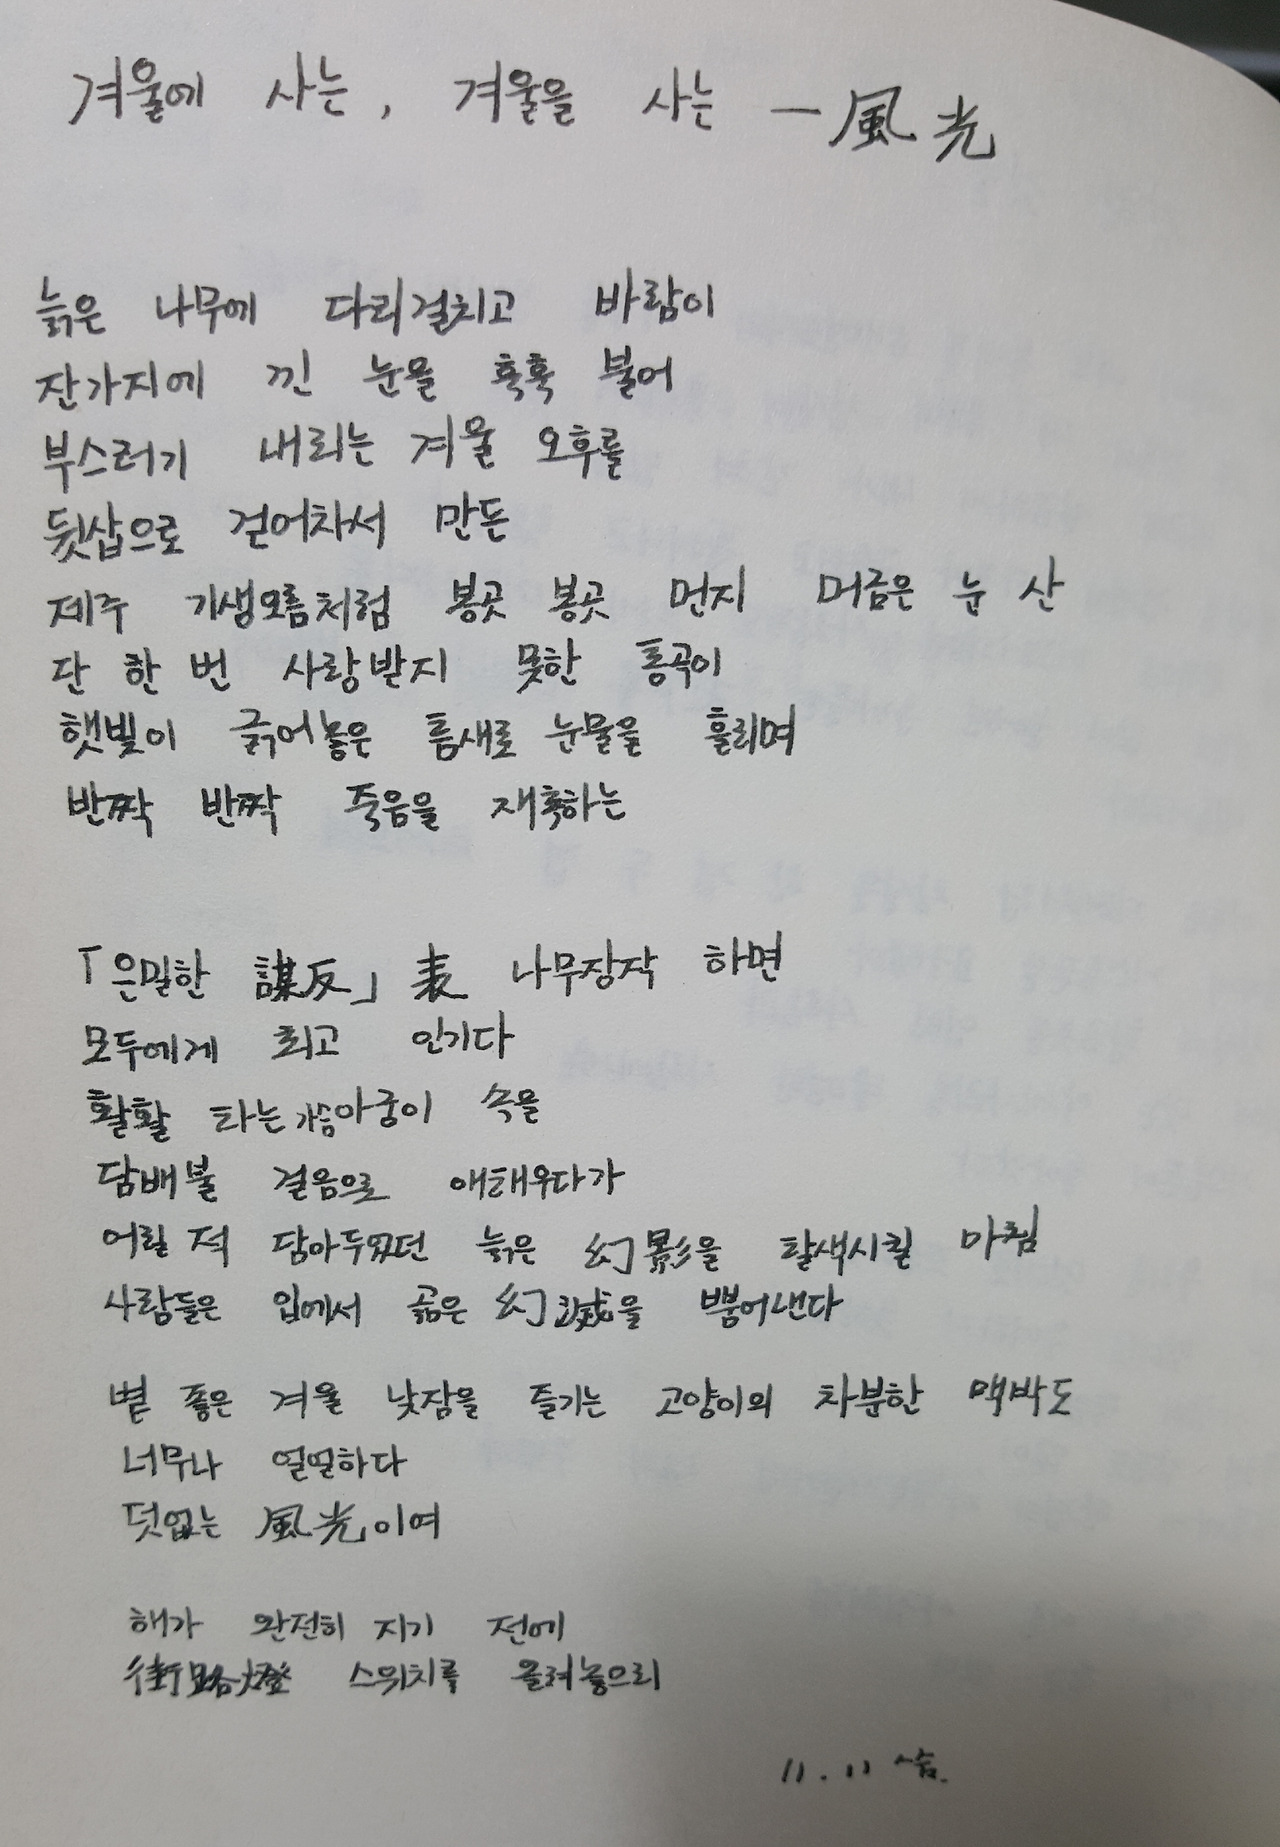 겨울에 사는, 겨울을 사는 — 風光
늙은 나무에 다리걸치고 바람이
잔가지에 낀 눈을 훅훅 불어
부스러기 내리는 겨울 오후를
뒷삽으로 걷어차서 만든
제주 기생오름처럼 봉곳 봉곳 먼지 머금은 눈 산
단 한 번 사랑받지 못한 통곡이
햇빛이 긁어놓은 틈새로 눈물을 흘리며
반짝 반짝 죽음을 재촉하는
「은밀한 謀反」 表 나무장작 하면
모두에게 최고 인기다
활활 타는 가슴아궁이 속을
담배불 걸음으로 애태우다가
어릴 적 담아두었던 늙은 幻影을 탈색시킬 아침
사람들은 입에서 곪은 幻滅을 뿜어낸다
볕 좋은 겨울 낮잠을 즐기는 고양이의 차분한 맥박도
너무나 얼얼하다
덧없는 風光이여
해가 완전히 지기 전에
街路燈 스위치를 올려놓으리
11. 11